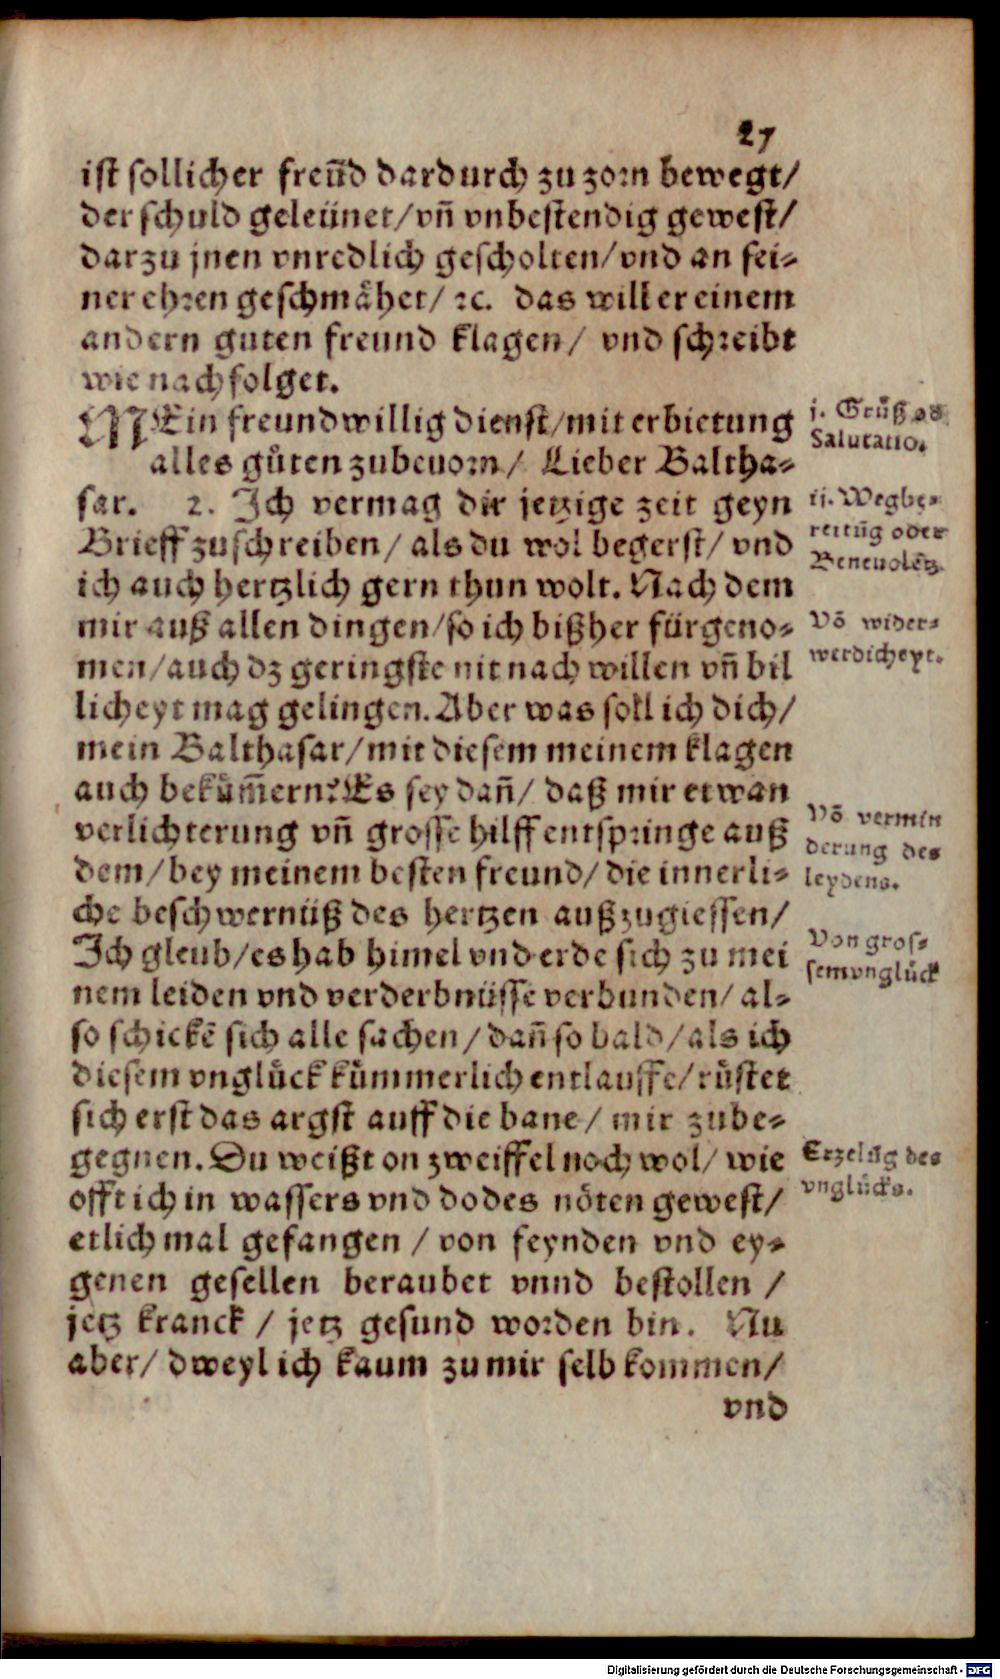 27
ist sollicher freūd dardurch zu zorn bewegt/
der schuld geleünet/vñ vnbestendig gewest/
darzu jnen vnredlich gescholten/vnd an sei-
ner ehren geschmähet/ ꝛc. das will er einem
andern guten freund klagen/ vnd schreibt
wie nachfolget.
MEin freundwillig dienst/mit erbietung
alles gůten zubeuorn/ Lieber Baltha-
sar. 2. Ich vermag dir jetzige zeit geyn
Brieff zuschreiben/ als du wol begerst/ vnd
ich auch hertzlich gern thun wolt. Nach dem
mir auß allen dingen/so ich bißher fürgeno-
men/auch dz geringste nit nach willen vñ bil
licheyt mag gelingen. Aber was soll ich dich/
mein Balthasar/mit diesem meinem klagen
auch bekům̃ern? Es sey dañ/ daß mir etwan
verlichterung vñ grosse hilff entspringe auß
dem/bey meinem besten freund/ die innerli-
che beschwernüß des hertzen außzugiessen/
Ich gleub/es hab himel vnd erde sich zu mei
nem leiden vnd verderbnüsse verbunden/ al-
so schickē sich alle sachen/dañ so bald/als ich
diesem vnglůck kůmmerlich entlauffe/růstet
sich erst das argst auff die bane/ mir zube-
gegnen. Du weißt on zweiffel noch wol/ wie
offt ich in wassers vnd dodes nöten gewest/
etlich mal gefangen / von feynden vnd ey-
genen gesellen beraubet vnnd bestollen /
jetz kranck / jetz gesund worden bin. Nu
aber/ dweyl ich kaum zu mir selb kommen/
vnd
j. Grůß od
Salutatio.
ij. Wegbe-
reitūg oder
Beneuolētz.
Vō wider-
werdicheyt.
Vō vermin
derung des
leydens.
Von gros-
sem vnglůck
Erzelūg des
vnglůcks.
Digitalisierung gefördert durch die Deutsche Forschungsgemeinschaft - DFG